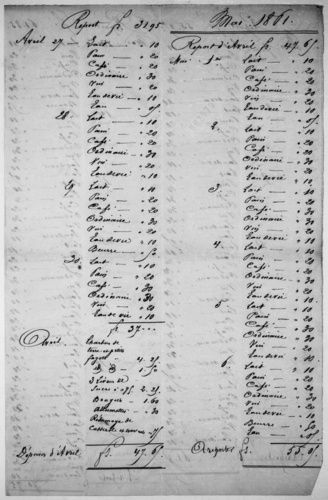 Report fr. 31.95
Avril 27 — Lait — " 10
Pain — " 20
Café — " 20
Ordinaire — " 30
Vin — " 20
Eau de vie — " 10
Eau — " 05
28. — Lait — " 10
Pain — " 20
Café — " 20
Ordinaire — " 30
Vin — " 20
Eau de vie — " 10
29. Lait — " 10
Pain — " 20
Café — " 20
Ordinaire — " 30
Vin — " 20
Eau de vie — " 10
Beurre — " 50
30. Lait — " 10
Pain — " 20
Café — " 20
Ordinaire — " 30
Vin — " 20
Eau de vie — " 10
fr. 37 . . .
Avril
3 Livres de
Sucre à
Bougie 1.60
Allumettes
Dépenses d'Avril fr. 47.65
Mai 1861.
Report d'Avril fr. 47.65
Mai 1er Lait — " 10
Pain — " 20
Café — " 20
Ordinaire — " 30
Vin — " 20
Eau de vie — " 10
Eau — " 05
2. Lait — " 10
Pain — " 20
Café — " 20
Ordinaire — " 30
Vin — " 20
Eau de vie — " 10
3. Lait — " 10
Pain — " 20
Café — " 20
Ordinaire — " 30
Vin — " 20
Eau de vie — " 10
4. Lait — " 10
Pain — " 20
Café — " 20
Ordinaire — " 30
Vin — " 20
Eau de vie — " 10
5 Lait — " 10
Pain — " 20
Café — " 20
Ordinaire — " 30
Vin — " 20
Eau de vie " 10
6. Lait — " 10
Pain — " 20
Café — " 20
Ordinaire — " 30
Vin — " 20
Eau de vie — " 10
Beurre — " 50
Eau — " 05
A reporter fr. 55.05